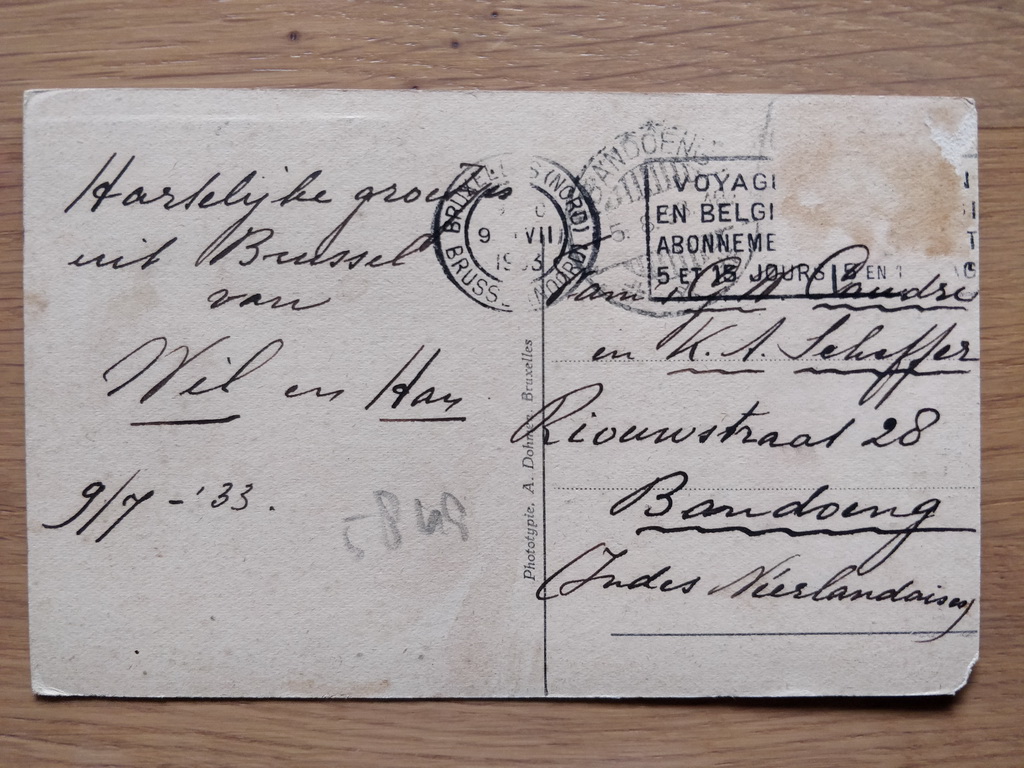 Hartelijke groetjes
uit Brussel
van
Wil en Han
9/7 - '33.
BRUXELLES (NORD)
9 VII
1933
BRUSSEL (NOORD)
BANDOENG
VOYAG
EN BELGI
ABONNEME
5 ET 15 JOURS
5 EN 1
Phototypie, A. Dohmen, Bruxelles
en K. A. Scheffer
Riouwstraat 28
Bandoeng
(Indes Néerlandaises)